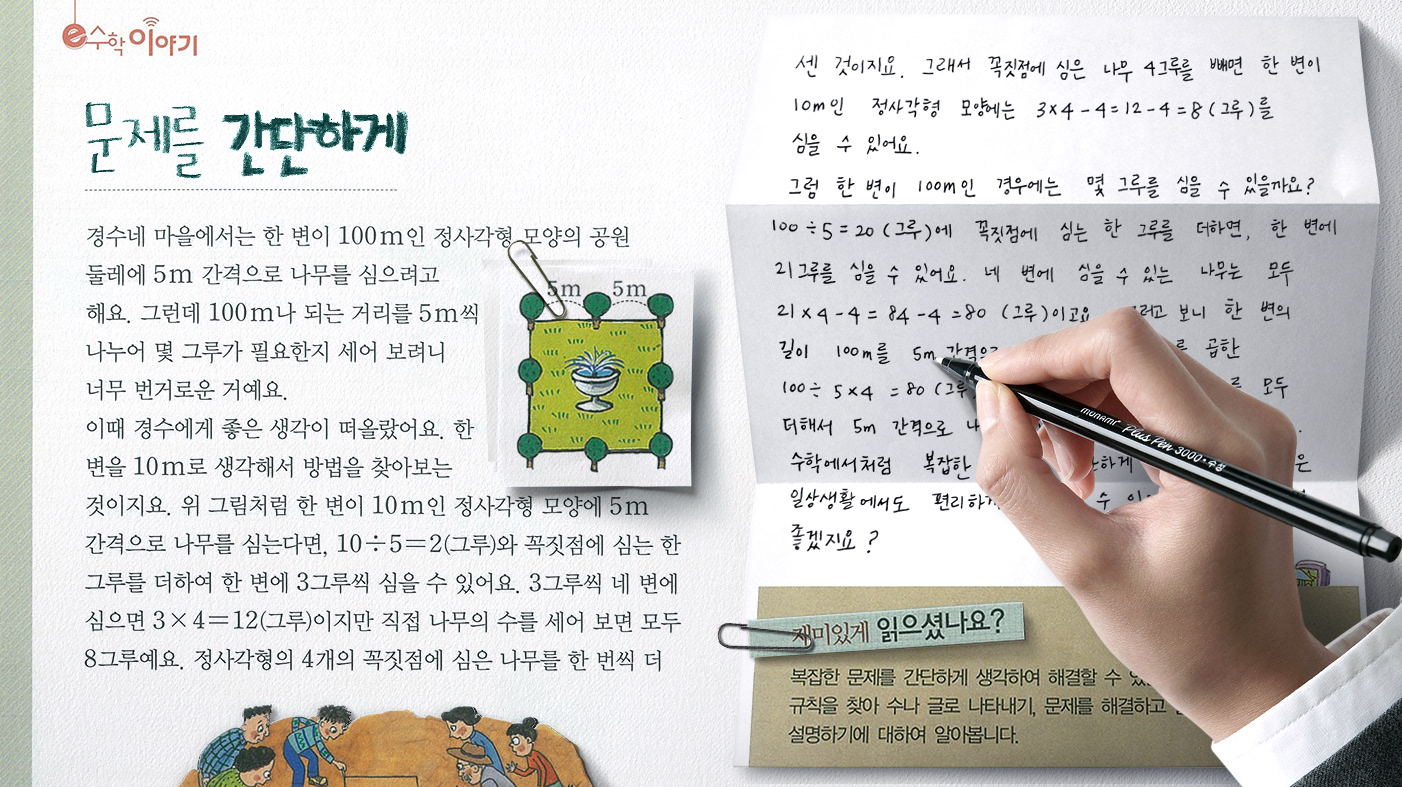 e수학 이야기
문제를 간단하게
경수네 마을에서는 한 변이 100m인 정사각형 모양의 공원
둘레에 5m 간격으로 나무를 심으려고
해요. 그런데 100m나 되는 거리를 5m씩
나누어 몇 그루가 필요한지 세어 보려니
너무 번거로운 거예요.
이때 경수에게 좋은 생각이 떠올랐어요. 한
변을 10m로 생각해서 방법을 찾아보는
것이지요. 위 그림처럼 한 변이 10m인 정사각형 모양에 5m
간격으로 나무를 심는다면, 10÷5=2(그루)와 꼭짓점에 심는 한
그루를 더하여 한 변에 3그루씩 심을 수 있어요. 3그루씩 네 변에
심으면 3×4=12(그루)이지만 직접 나무의 수를 세어 보면 모두
8그루예요. 정사각형의 4개의 꼭짓점에 심은 나무를 한 번씩 더
5m 5m
센 것이지요. 그래서 꼭짓점에 심은 나무 4그루를 빼면 한 변이
10m인 정사각형 모양에는 3×4-4=12-4=8(그루)를
심을 수 있어요.
그럼 한 변이 100m인 경우에는 몇 그루를 심을 수 있을까요?
100÷5=20(그루)에 꼭짓점에 심는 한 그루를 더하면, 한 변에
21그루를 심을 수 있어요. 네 변에 심을 수 있는 나무는 모두
21×4-4=84-4=80 (그루)이고요 보니 한 변의
길이 100m를 5m 곱한
100÷5×4=80 모두
더해서 5m 간격으로
수학에서처럼 복잡한
일상생활에서도 수
좋겠지요?
재미있게 읽으셨나요?
복잡한 문제를 간단하게 생각하여 해결할 수
규칙을 찾아 수나 글로 나타내기, 문제를 해결하고
설명하기에 대하여 알아봅니다.
MONAMI Plus Pen 3000·수성